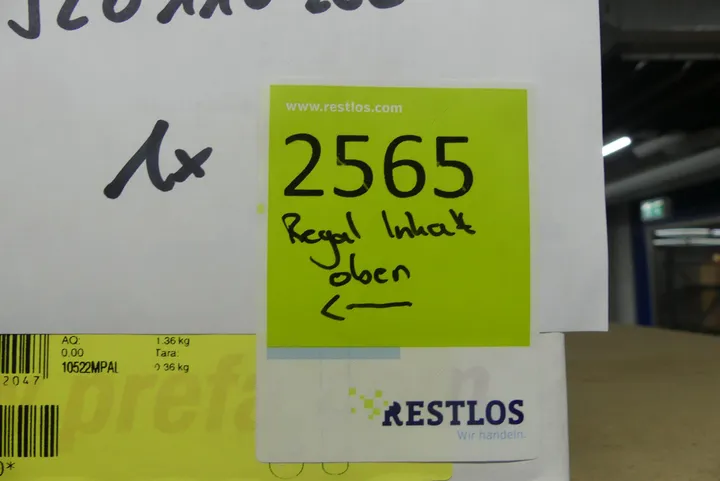 1x
www.restlos.com
2565
Regal Inhalt
oben
AQ: 1.36 kg
0.00 Tara:
10522MPAL 0.36 kg
2047
RESTLOS
Wir handeln.